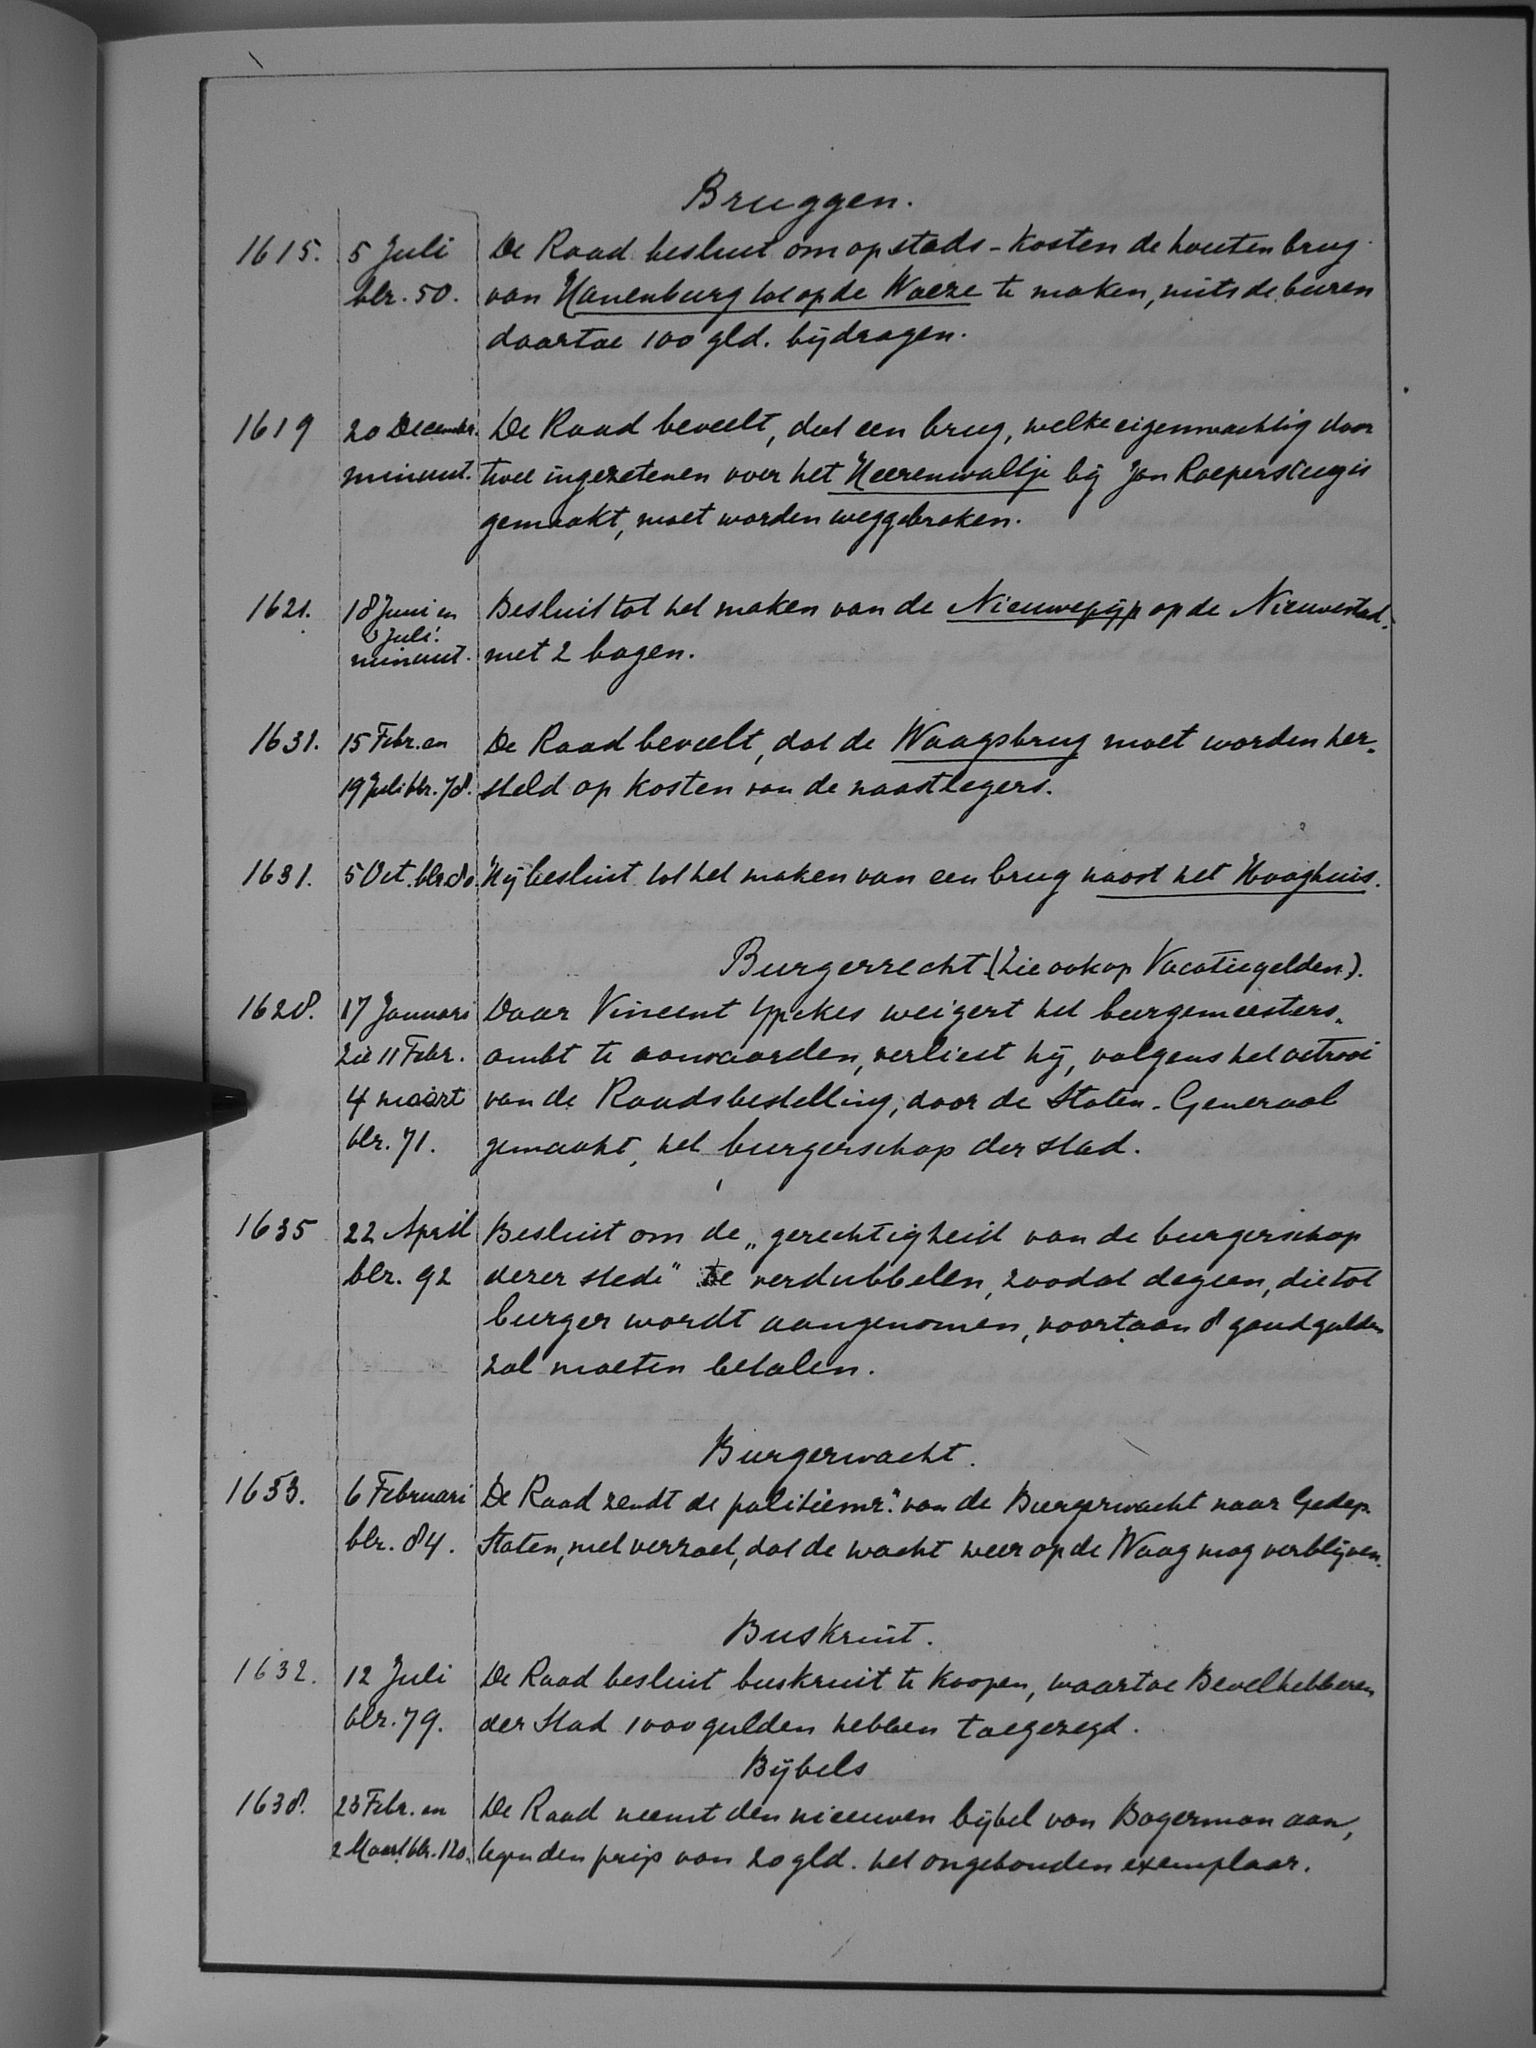 Bruggen.
1615. 5 Juli De Raad besluit om op stads-kosten de houten brug
blz. 50. van Hanenburg tot op de Waeze te maken, mits de buren
daartoe 100 gld. bijdragen.
1619 20 December De Raad beveelt, dat een brug, welke eigenmachtig door
minuut. twee ingezetenen over het Heerenwaltje bij Jan Roepers
gemaakt, moet worden weggebroken.
1621. 18 Juni en Besluit tot het maken van de Nieuwepijp op de Nieuwestad.
3 Juli.
minuut. met 2 bogen.
1631. 15 Febr. en De Raad beveelt, dat de Waagsbrug moet worden her-
19 Juli blz. 78. steld op kosten van de naastlegers.
1631. 5 Oct. blz. 80 Hij besluit tot het maken van een brug naast het Hooghuis.
Burgerrecht (Zie ook op Vacatiegelden.).
1628. 17 Januari Daar Vincent Ypckes weigert het burgemeesters-
Zie 11 Febr. ambt te aanvaarden, verliest hij, volgens het octrooi
4 maart van de Raadsbestelling, door de Staten-Generaal
blz. 71. gemaakt, het burgerschap der stad.
1635 22 April Besluit om de „gerechtigheid van de burgerschap
blz. 92 dezer stede" te verdubbelen, zoodat degeen, die tot
burger wordt aangenomen, voortaan 8 goudgulden
zal moeten betalen.
Burgerwacht.
1633. 6 Februari De Raad zendt de politiemrs. van de Burgerwacht naar Gedep.
blz. 84. Staten, met verzoek, dat de wacht weer op de Waag mag verblijven.
Buskruit.
1632. 12 Juli De Raad besluit buskruit te koopen, waartoe Bevelhebberen
blz. 79. der Stad 1000 gulden hebben toegezegd.
Bijbels
1638. 23 Febr. en De Raad neemt den nieuwen bijbel van Bogerman aan,
2 Maart blz. 120. tegen den prijs van 20 gld. het ongebonden exemplaar.